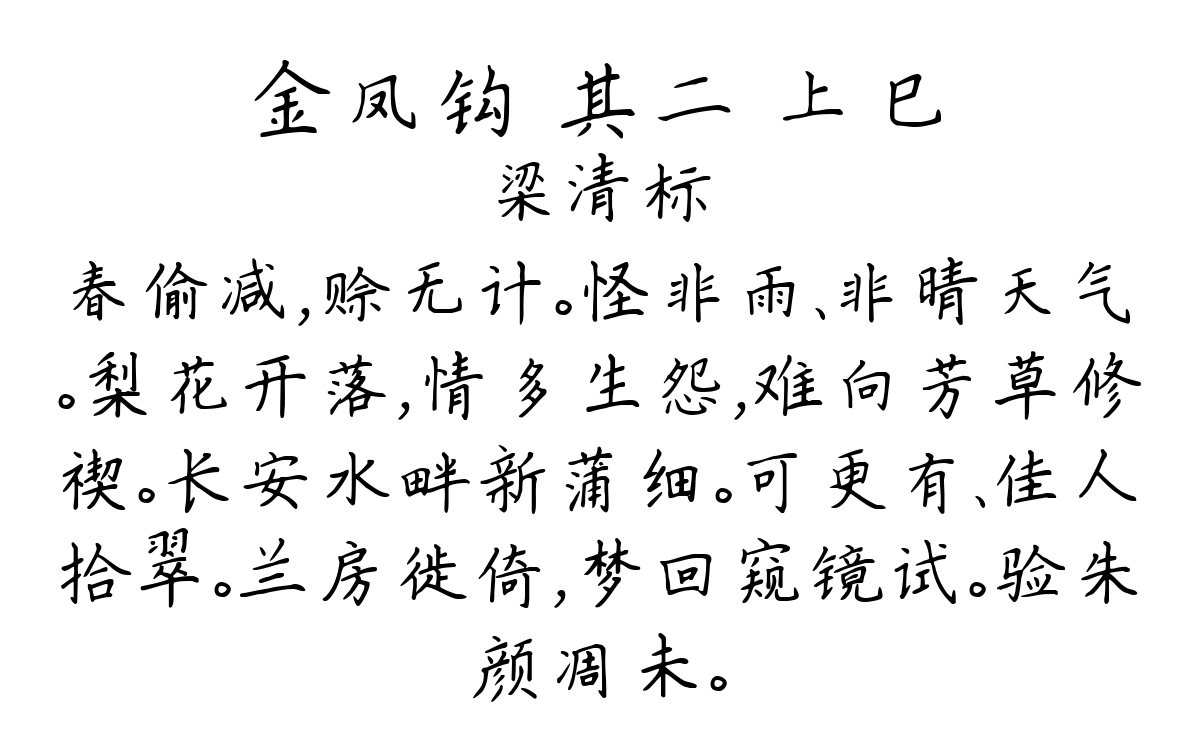 金凤钩 其二 上巳
梁清标
春偷减,赊无计。怪非雨、非晴天气
。梨花开落,情多生怨,难向芳草修
禊。长安水畔新蒲细。可更有、佳人
拾翠。兰房徙倚,梦回窥镜试。验朱
颜凋未。